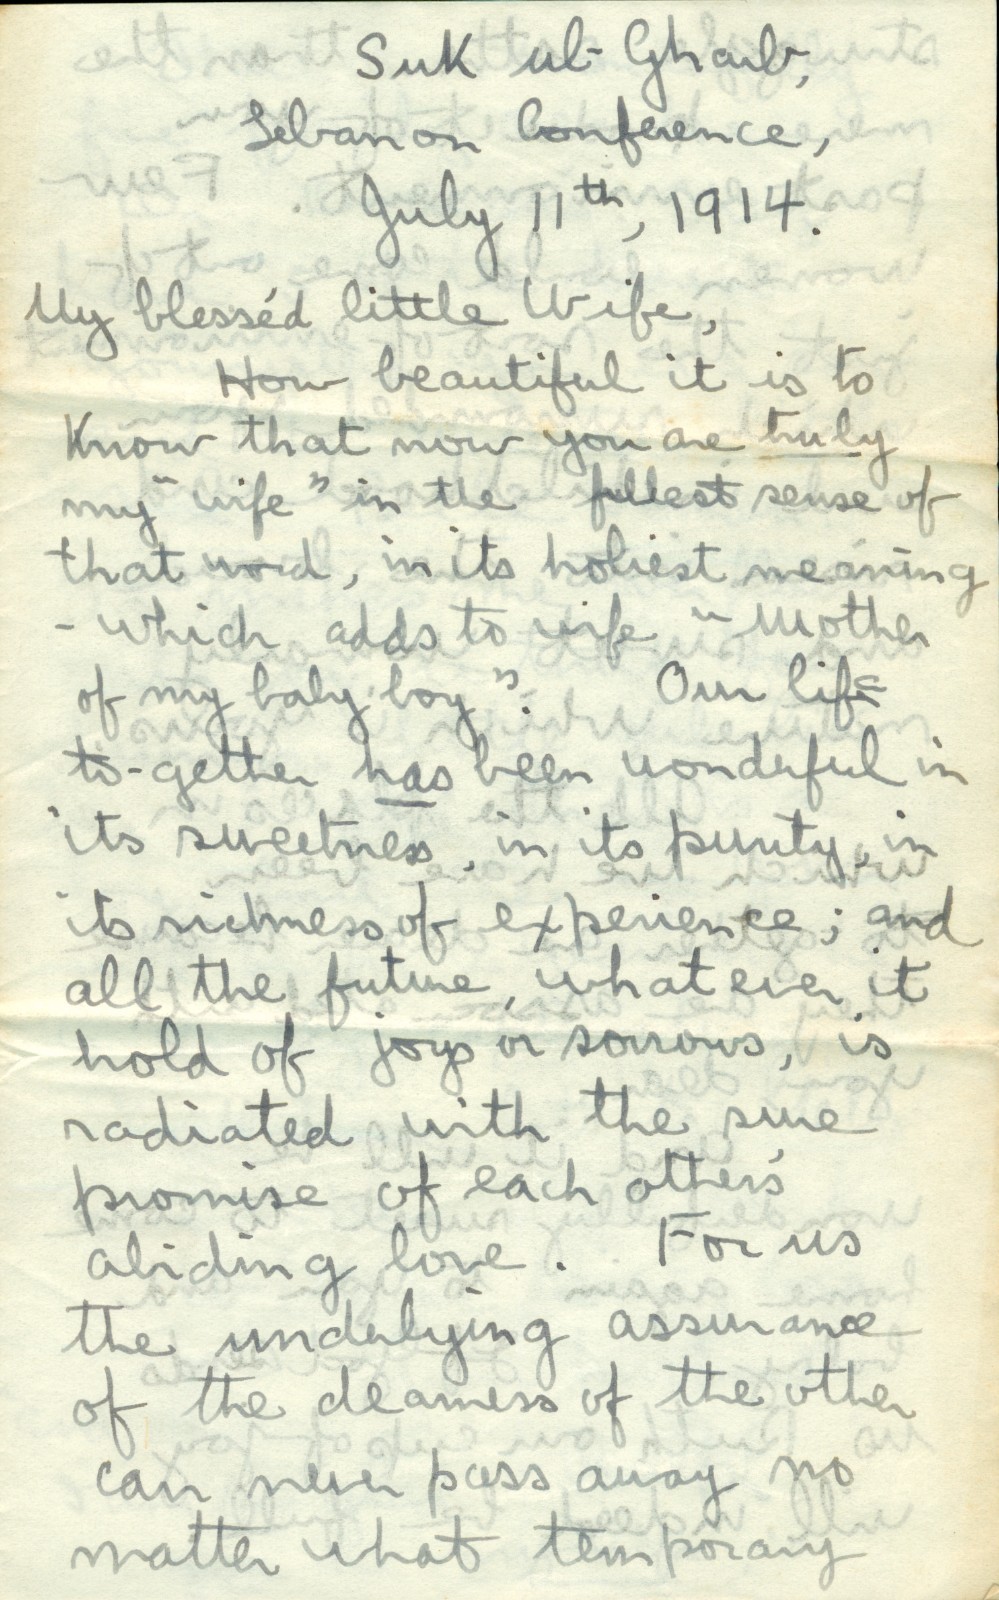 Suk ul-Gharb,
Lebanon Conference,
July 11th, 1914.
My blesséd little Wife,
How beautiful it is to
Know that now you are truly
my "wife" in the fullest sense of
that word, in its holiest meaning
- which adds to wife "Mother
of my baby boy". Our life
to-gether has been wonderful in
its sweetness, in its purity, in
its richness of experience; and
all the future, whatever it
hold of joys or sorrows, is
radiated with the sure
promise of each other's
abiding love. For us
the underlying assurance
of the dearness of the other
can never pass away no
matter what temporary